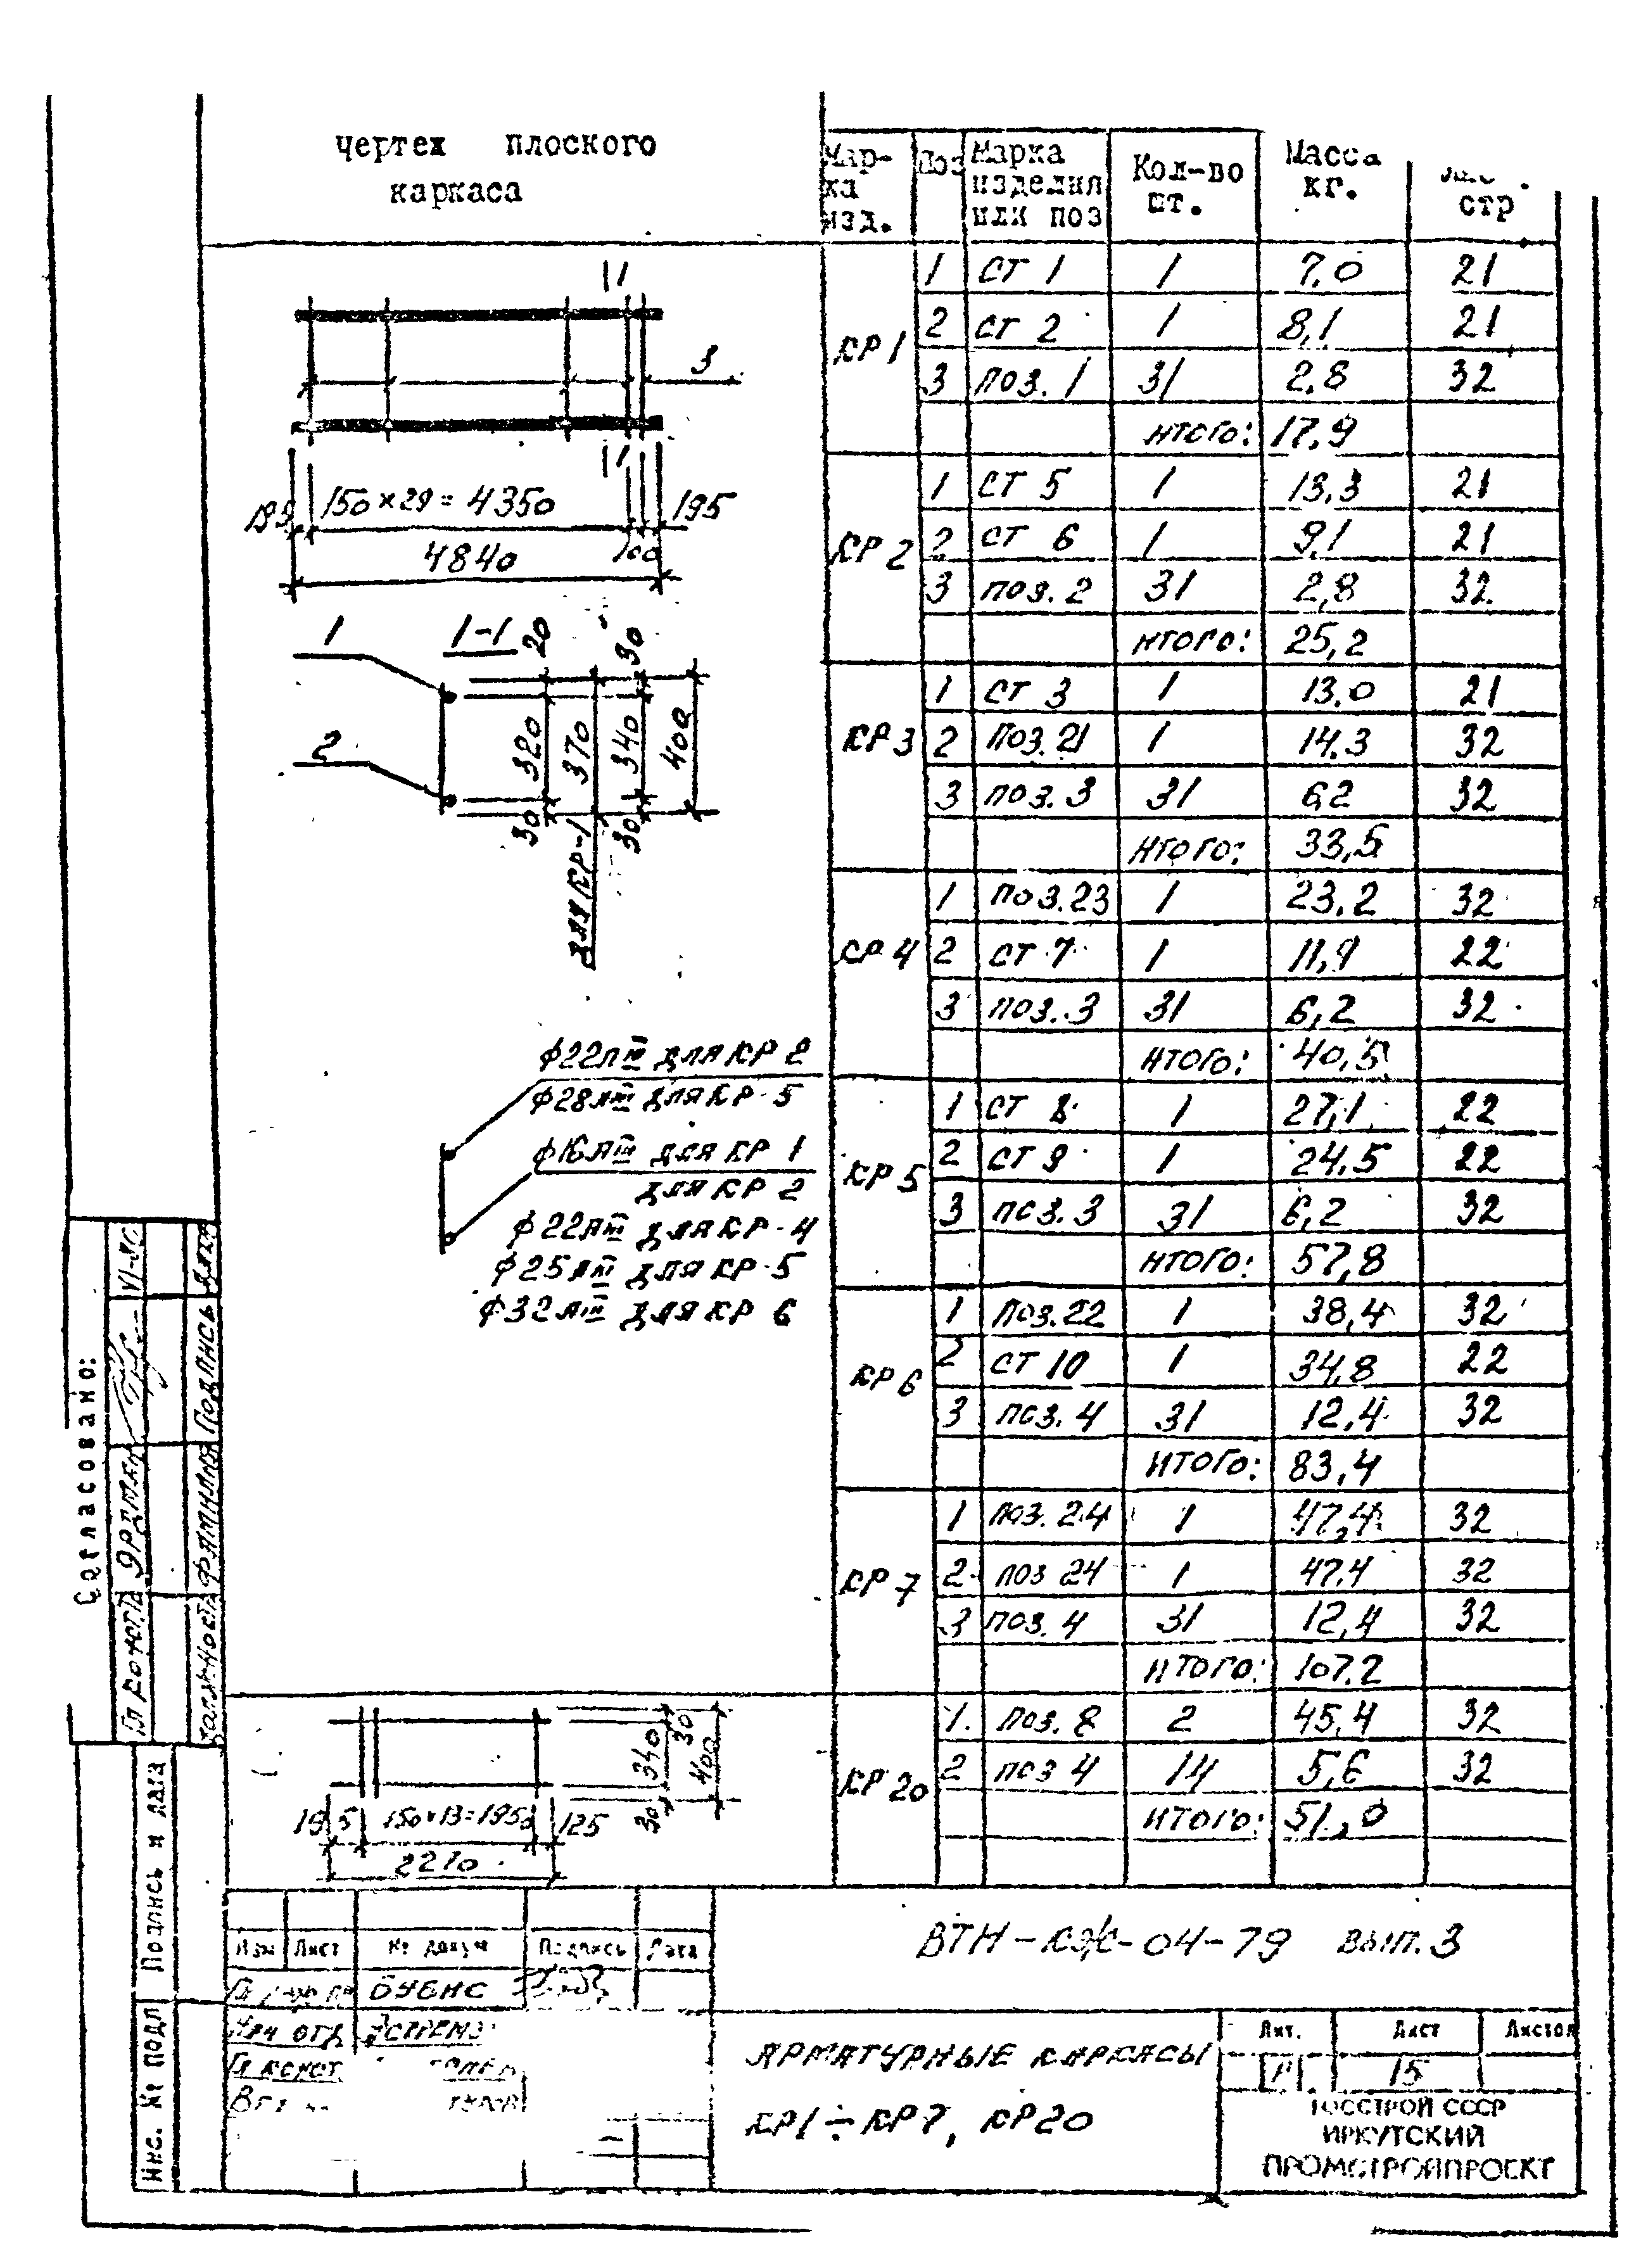 чертеж плоского
каркаса
Мар-
ка
изд.
Поз
Марка
изделия
или поз
Кол-во
шт.
Масса
кг.
стр
КР 1
1 СТ 1 1 7,0 21
2 СТ 2 1 8,1 21
3 ПОЗ. 1 31 2,8 32
ИТОГО: 17,9
КР 2
1 СТ 5 1 13,3 21
2 СТ 6 1 9,1 21
3 ПОЗ. 2 31 2,8 32
ИТОГО: 25,2
КР 3
1 СТ 3 1 13,0 21
2 ПОЗ. 21 1 14,3 32
3 ПОЗ. 3 31 6,2 32
ИТОГО: 33,5
КР 4
1 ПОЗ. 23 1 23,2 32
2 СТ 7 1 11,9 22
3 ПОЗ. 3 31 6,2 32
ИТОГО: 40,5
КР 5
1 СТ 8 1 27,1 22
2 СТ 9 1 24,5 22
3 ПОЗ. 3 31 6,2 32
ИТОГО: 57,8
КР 6
1 ПОЗ. 22 1 38,4 32
2 СТ 10 1 34,8 22
3 ПОЗ. 4 31 12,4 32
ИТОГО: 83,4
КР 7
1 ПОЗ. 24 1 47,4 32
2 ПОЗ 24 1 47,4 32
3 ПОЗ. 4 31 12,4 32
ИТОГО: 107,2
КР 20
1. ПОЗ. 8 2 45,4 32
2 ПОЗ 4 14 5,6 32
ИТОГО: 51,0
1
3
1
195 150×29=4350 195
4840 100
1 1-1 20 30
2 320 370 340 400
30 ДЛЯ КР-1 30
ф22АIII ДЛЯ КР 2
ф28АIII ДЛЯ КР-5
ф16АIII ДЛЯ КР 1
ДЛЯ КР 2
ф22АIII ДЛЯ КР-4
ф25АIII ДЛЯ КР-5
ф32АIII ДЛЯ КР 6
340 30 400 30
195 150×13=1950 125
2270
Согласовано:
Должность Фамилия Подпись Дата
Инв. № подл Подпись и дата
Изм Лист № докум Подпись Дата
БУБИС
Нач отд
Гл констр
ВТН-КЖ-04-79 вып. 3
АРМАТУРНЫЕ КАРКАСЫ
КР1÷КР7, КР20
Лит. Лист Листов
Р 15
ГОССТРОЙ СССР
ИРКУТСКИЙ
ПРОМСТРОЙПРОЕКТ